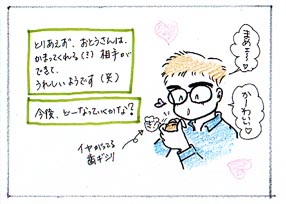 とりあえず、おとうさんは、
かまってくれる(?)相手が
できて、
うれしいようです(笑)
今後、どーなっていくかな?
まめこ〜♡
かーわいい♡
イヤがってる
歯ギシリ